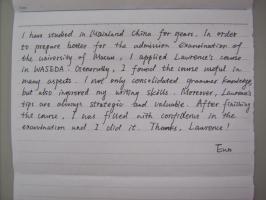 I have studied in Mainland China for years. In order
to prepare better for the admission examination of
the university of Macau, I applied Lawrence's course
in WASEDA. Generally, I found the course useful in
many aspects. I not only consolidated grammar knowledge,
but also improved my writing skills. Moreover, Lawrence's
tips are always strategic and valuable. After finishing
the course, I was filled with confidence in the
examination and I did it. Thanks, Lawrence!